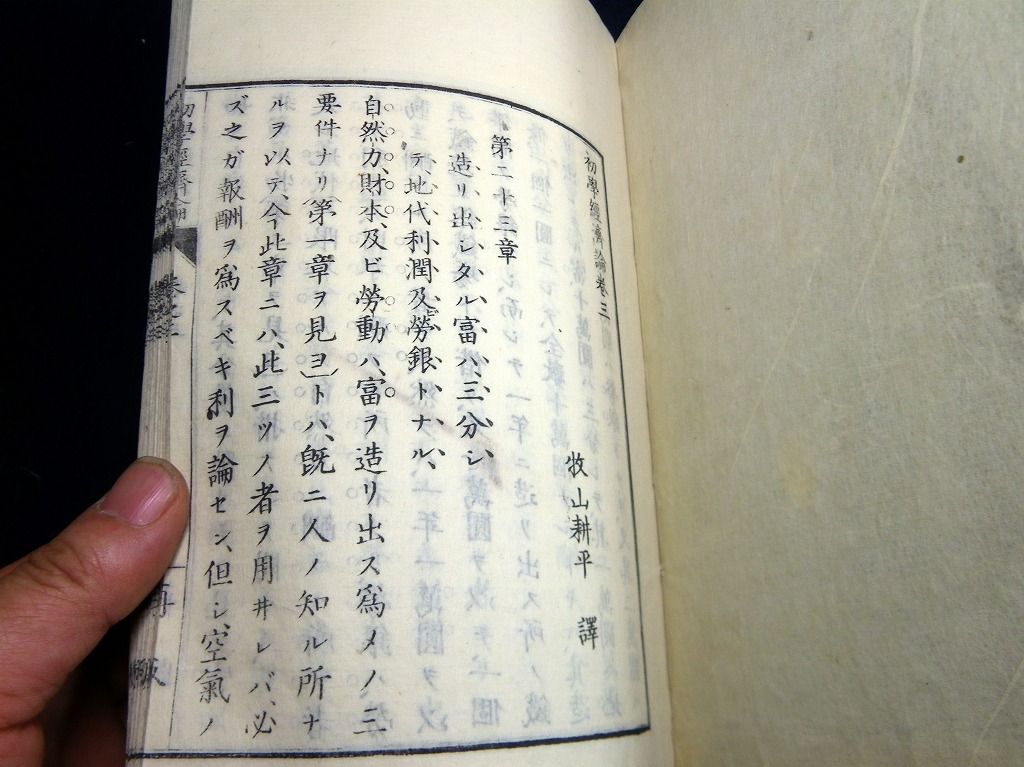 初學經濟論卷三
牧山耕平 譯
第二十三章
造リ出シタル富ハ、三分シ、
テ、地代利潤及勞銀トナル、
自然力、財本、及ビ勞動ハ、富ヲ造リ出ス爲メノ三
要件ナリ(第一章ヲ見ヨ)トハ、既ニ人ノ知ル所ナ
ルヲ以テ、今此章ニハ、此三ツノ者ヲ用井レバ、必
ズ之ガ報酬ヲ爲スベキ利ヲ論セン、但シ、空氣ノ